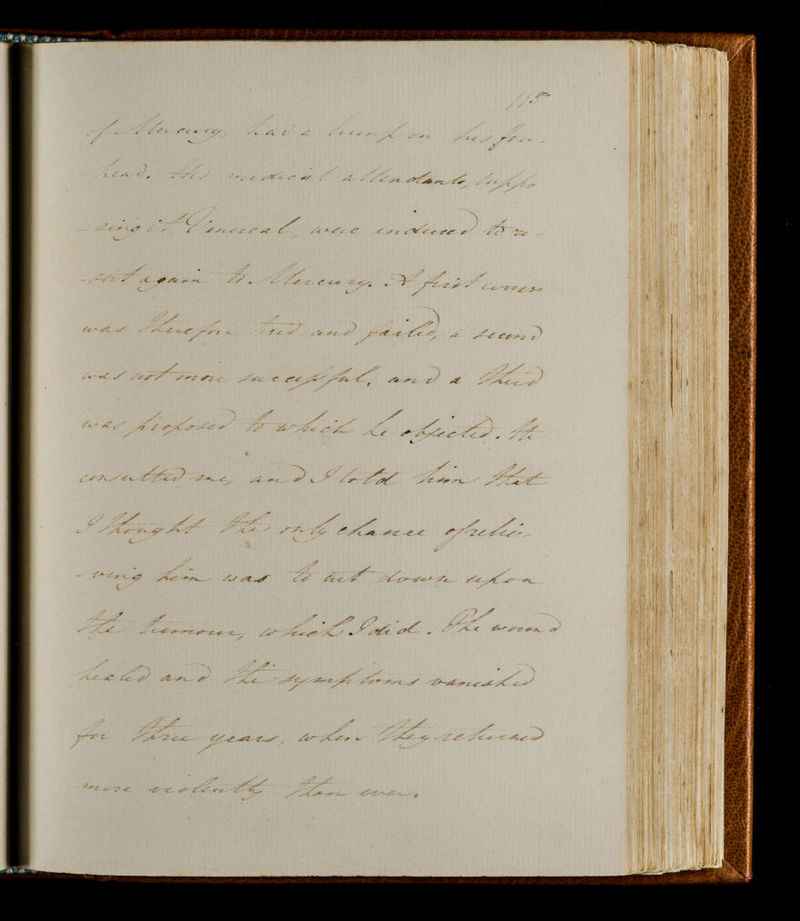 115
of Mercury, had a lump on his fore-
-head. His medical attendants, suppo
-sing it Venereal, were induced to re-
-sort again to Mercury. A first course
was therefore tried and failed, a second
was not more successful, and a third
was proposed to which he objected. He
consulted me, and I told him that
I thought the only chance of relie-
-ving him was to cut down upon
the tumour, which I did. The wound
healed and the symptoms vanished
for three years, when they returned
more violently than ever.